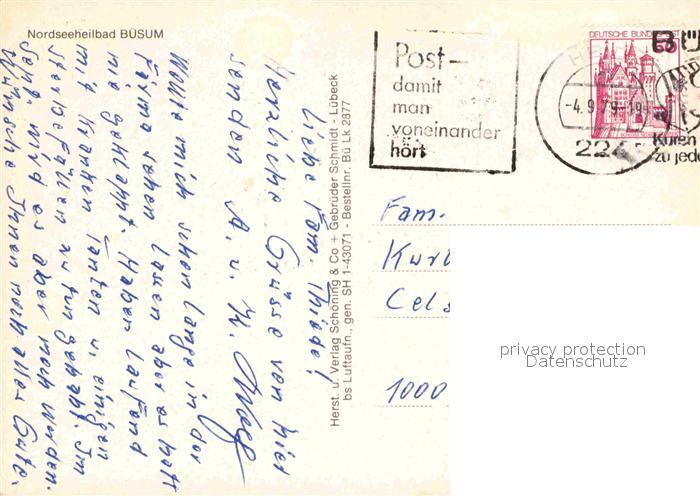 Nordseeheilbad BÜSUM
Liebe Fam. Thiede!
Herzliche Grüsse von hier
senden A. u. H.
Wollte mich schon lange in der
Firma sehen lassen aber es hatt
nie geklappt. Haben laufend
mit kranken Tanten u. einigen
Sterbefällen zu tun gehabt. Im
Sept. wird es aber noch werden.
Wünsche Ihnen noch alles Gute.
Herst. u. Verlag Schöning & Co + Gebrüder Schmidt - Lübeck
bs Luftaufn., gen. SH 1-43071 - Bestellnr. Bü Lk 2877
Post-
damit
man
voneinander
hört
DEUTSCHE BUNDESPOST
-4.9.79-19
224
Kuren
zu jede
Fam.
Kurt
Cels
1000
privacy protection
Datenschutz